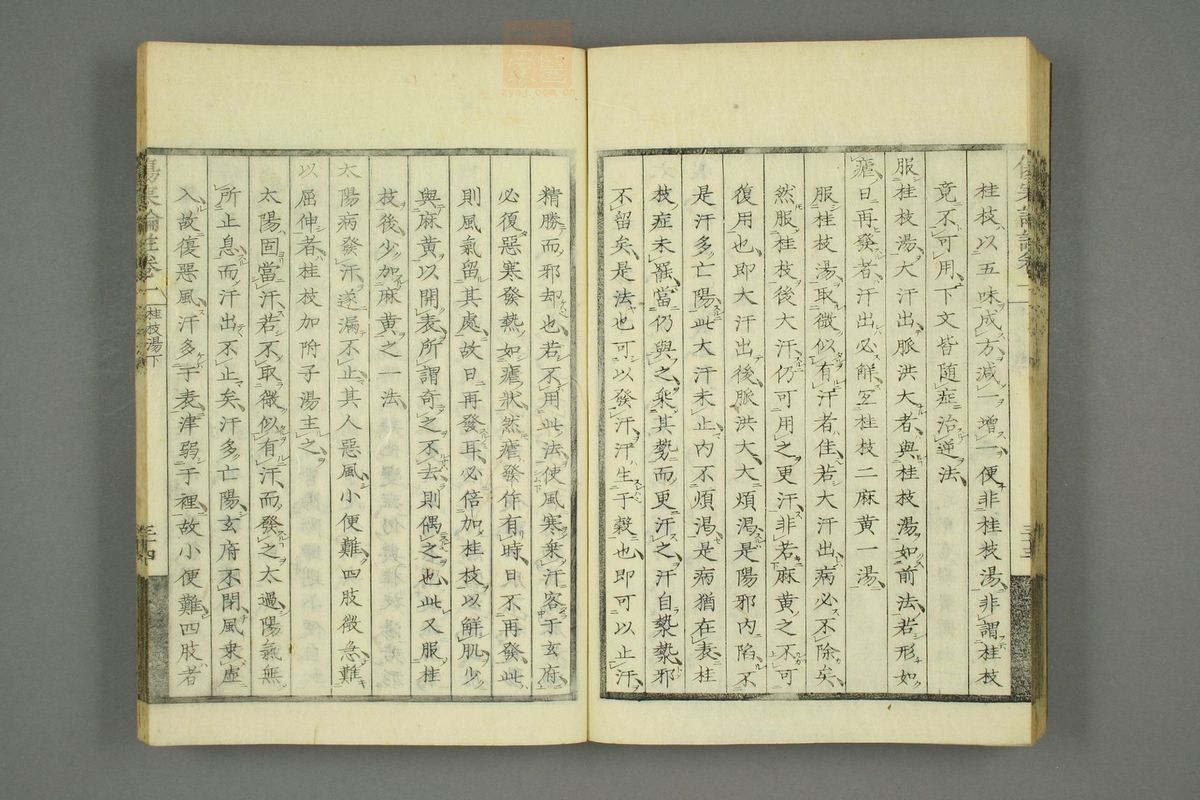 桂枝以五味成方減一增一便非桂枝湯非謂桂枝
竟不可用下文皆隨症治逆法
服桂枝湯大汗出脈洪大者與桂枝湯如前法若形如
瘧日再發者汗出必解宜桂枝二麻黃一湯
服桂枝湯取微似有汗者佳若大汗出病必不除矣
然服桂枝後大汗仍可用之更汗非若麻黃之不可
復用也即大汗出後脈洪大大煩渴是陽邪內陷不
是汗多亡陽此大汗未止內不煩渴是病猶在表桂
枝症未罷當仍與之乘其勢而更汗之汗自漐漐邪
不留矣是法也可以發汗汗生于穀也即可以止汗
精勝而邪却也若不用此法使風寒乘汗客于玄府
必復惡寒發熱如瘧狀然瘧發作有時日不再發此
則風氣留其處故日再發耳必倍加桂枝以解肌少
與麻黃以開表所謂奇之不去則偶之也此又服桂
枝後少加麻黃之一法
太陽病發汗遂漏不止其人惡風小便難四肢微急難
以屈伸者桂枝加附子湯主之
太陽固當汗若不取微似有汗而發之太過陽氣無
所止息而汗出不止矣汗多亡陽玄府不閉風乘虛
入故復惡風汗多于表津弱于裡故小便難四肢者
桂枝湯下
三十四